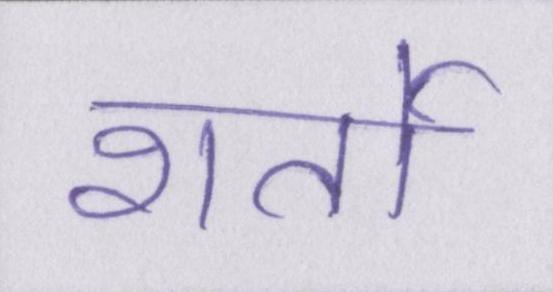 शर्तो